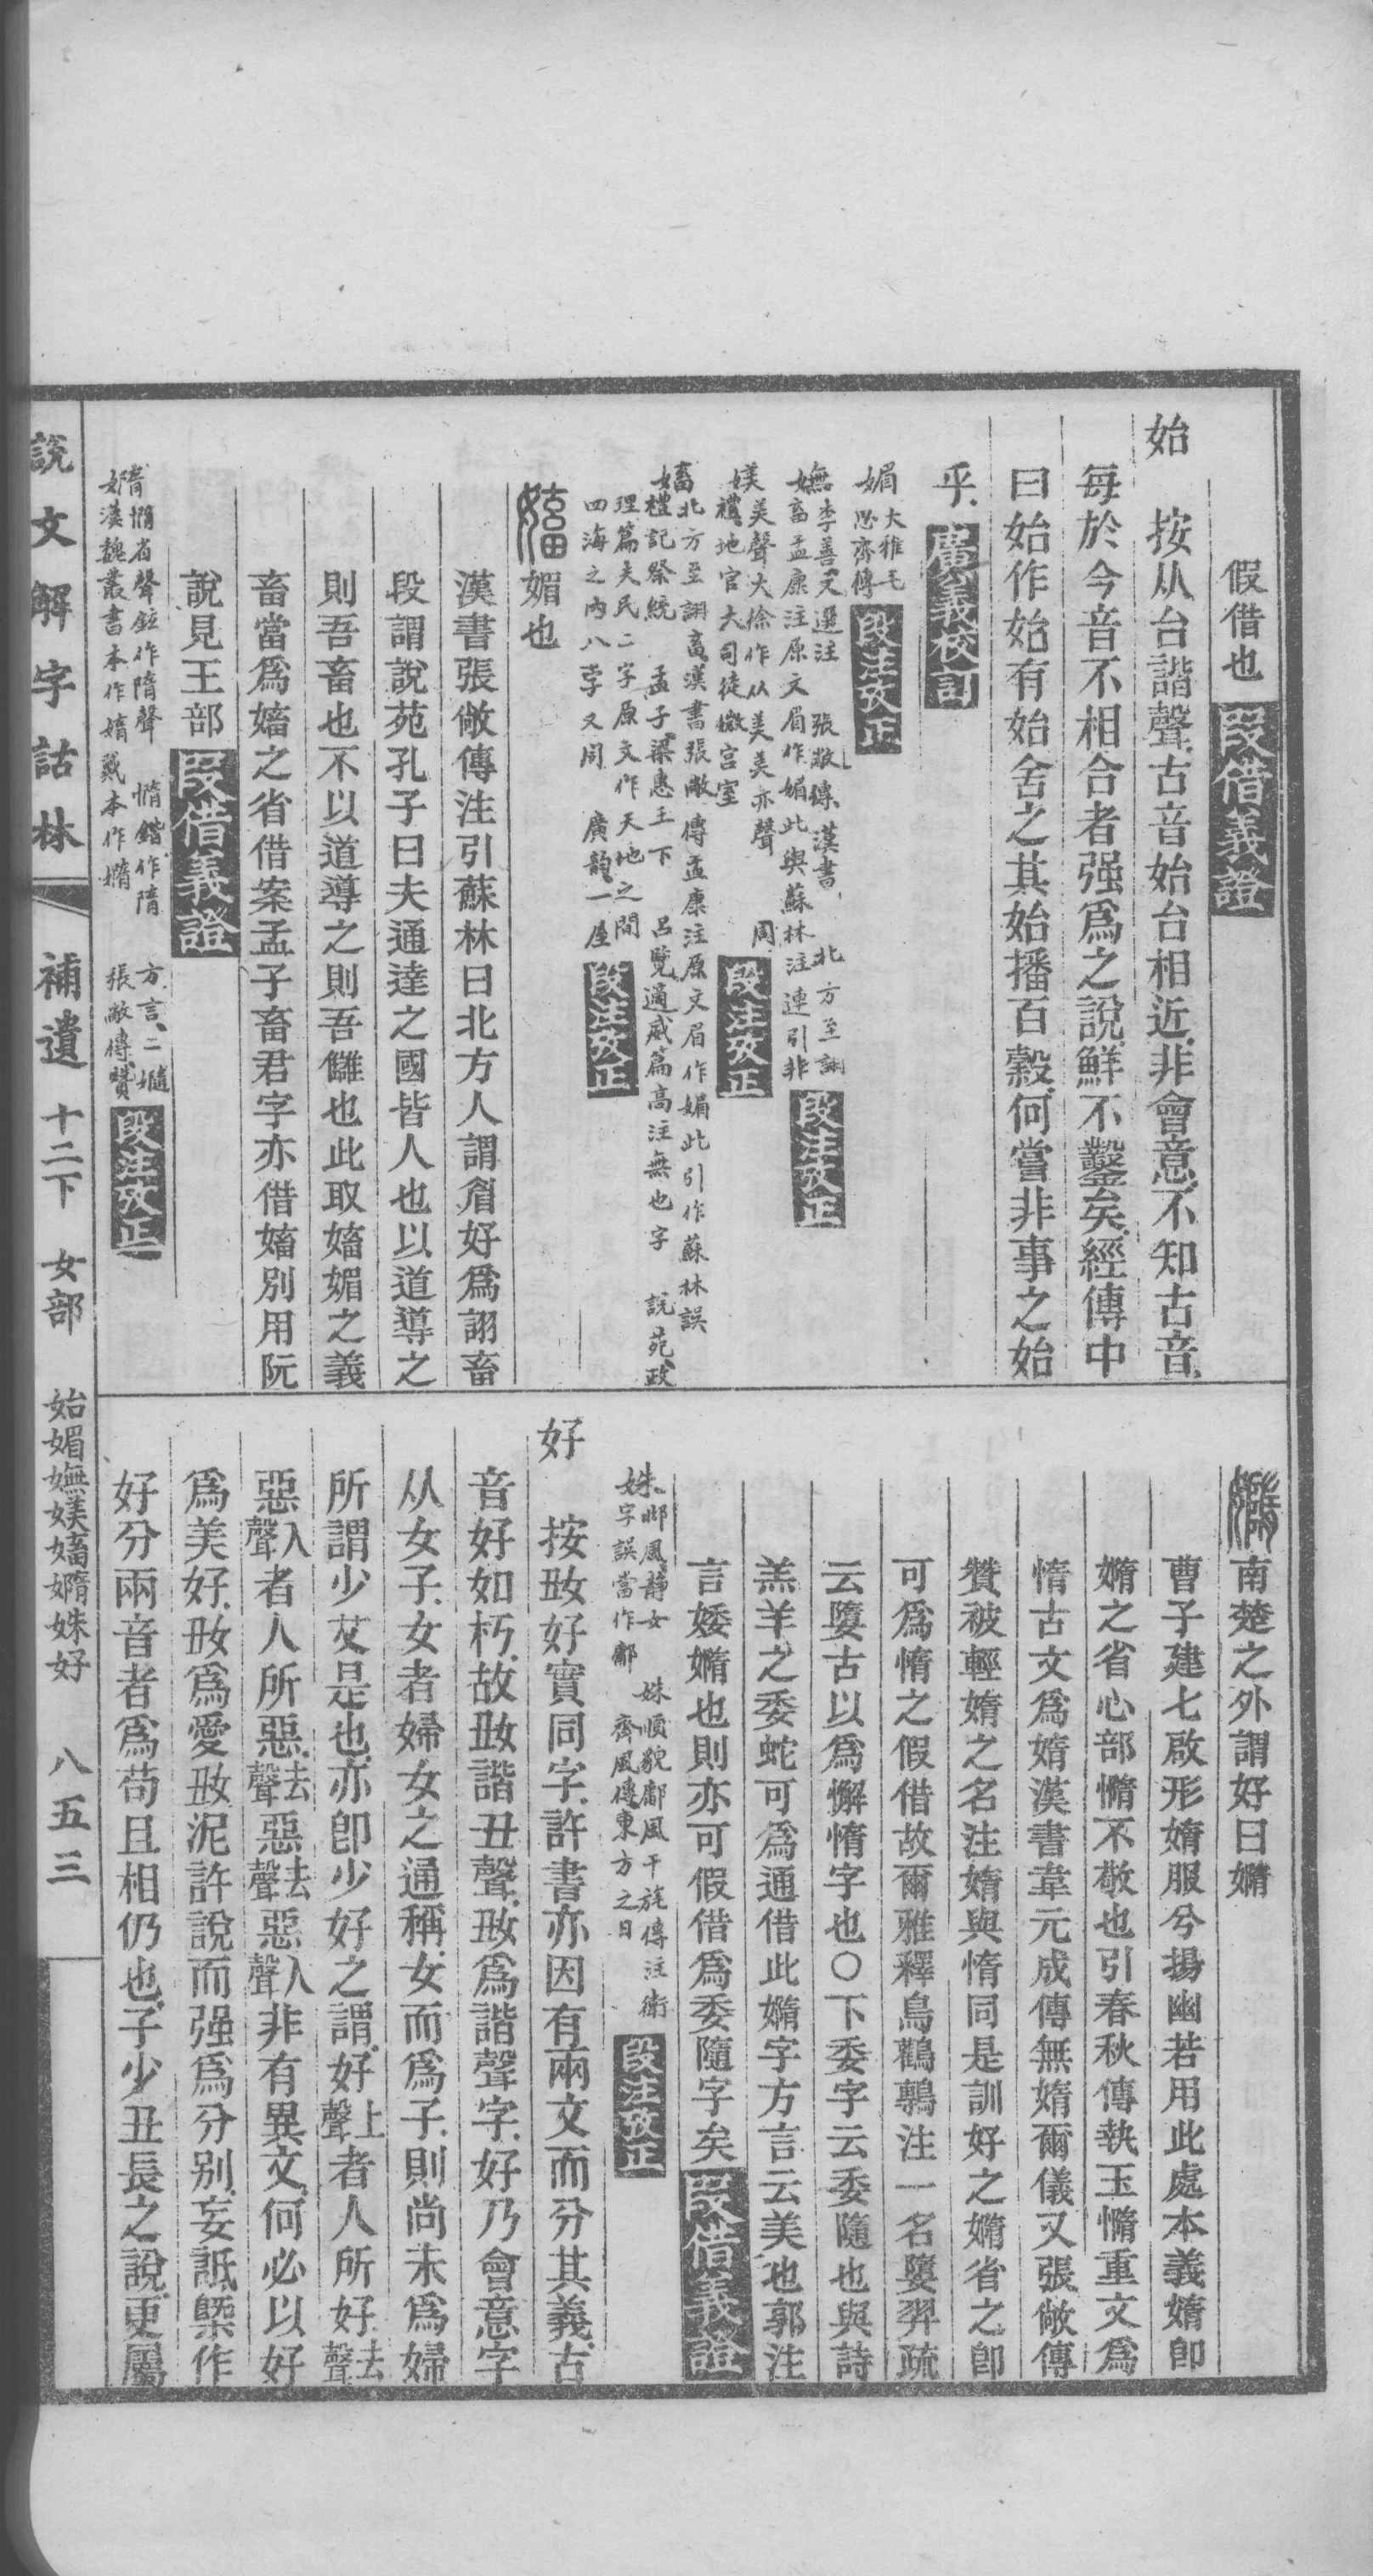 假借也 叚借義證
始 按从台諧聲古音始台相近非會意不知古音
每於今音不相合者强爲之說鮮不鑿矣經傳中
曰始作始有始舍之其始播百穀何嘗非事之始
乎 廣義校訂
媚 大雅毛
思齊傳 段注攷正
嫵 李善文選注 張敞傳 漢書 北方至詡
畜孟康注原文眉作媚此與蘇林注連引非 段注攷正
媄 美聲大徐作从美美亦聲 周
禮地官大司徒媺宮室 段注攷正
嬌 北方至詡畜漢書張敞傳孟康注原文眉作媚此引作蘇林誤
禮記祭統 孟子梁惠王下 呂覽適威篇高注無也字 說苑政
理篇夫民二字原文作天地之間
四海之內八字又同 廣韵一屋 段注攷正
媚也
漢書張敞傳注引蘇林曰北方人謂眉好爲詡畜
段謂說苑孔子曰夫通達之國皆人也以道導之
則吾畜也不以道導之則吾讎也此取嬌媚之義
畜當爲嬌之省借案孟子畜君字亦借嬌別用阮
說見王部 叚借義證
嫷 惰省聲鉉作隋聲 惰鍇作隋 方言二
漢魏叢書本作媠戴本作嫷 張敞傳贊 段注攷正
南楚之外謂好曰嫷
曹子建七啟形媠服兮揚幽若用此處本義媠卽
嫷之省心部憜不敬也引春秋傳執玉憜重文爲
惰古文爲媠漢書韋元成傳無媠爾儀又張敞傳
贊被輕媠之名注媠與惰同是訓好之嫷省之卽
可爲惰之假借故爾雅釋鳥鸛鷒注一名墮羿疏
云墮古以爲懈惰字也○下委字云委隨也與詩
羔羊之委蛇可爲通借此嫷字方言云美也郭注
言婑嫷也則亦可假借爲委隨字矣 叚借義證
姝 邶風静女 姝順貌鄘風干旄傳注衛
字誤當作鄘 齊風傳東方之日 段注攷正
好 按㚼好實同字許書亦因有兩文而分其義古
音好如朽故㚼諧丑聲㚼爲諧聲字好乃會意字
从女子女者婦女之通稱女而爲子則尚未爲婦
所謂少艾是也亦卽少好之謂好上聲者人所好去聲
惡入聲者人所惡去聲惡去聲惡入聲非有異文何必以好
爲美好㚼爲愛㚼泥許說而强爲分別妄詆槩作
好分兩音者爲苟且相仍也子少丑長之說更屬
說文解字詁林 補遺 十二下 女部 始媚嫵媄嬌嫷姝好 八五三